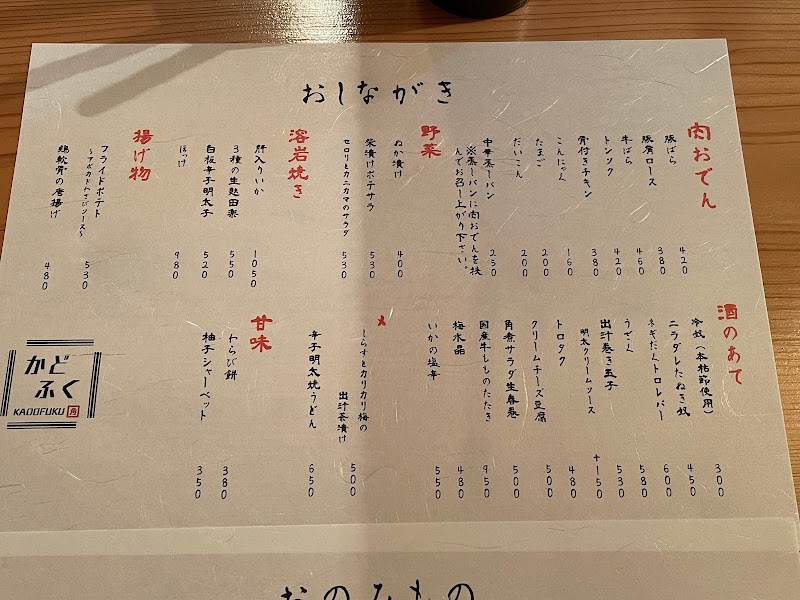 おしながき
肉おでん
豚ばら 420
豚肩ロース 380
牛ばら 460
トンソク 420
骨付きチキン 380
こんにゃく 160
たまご 200
だいこん 200
中華蒸しパン 250
※蒸しパンに肉おでんを挟
んでお召し上がり下さい。
野菜
ぬか漬け 400
柴漬けポテサラ 530
セロリとカニカマのサラダ 530
溶岩焼き
肝入りいか 1050
3種の生麩田楽 550
白板辛子明太子 520
ほっけ 980
揚げ物
フライドポテト 530
～アボカドわさびソース～
鶏軟骨の唐揚げ 480
酒のあて
冷奴(本枯節使用) 300
ニラダレたぬき奴 450
ネギだくトロレバー 600
うざく 580
出汁巻き玉子 530
明太クリームソース +150
トロタク 480
クリームチーズ豆腐 500
角煮サラダ生春巻 500
国産牛もものたたき 950
梅水晶 480
いかの塩辛 550
〆
しらすとカリカリ梅の
出汁茶漬け 500
辛子明太焼うどん 650
甘味
わらび餅 380
柚子シャーベット 350
かど
ふく
KADOFUKU 角
おのみもの